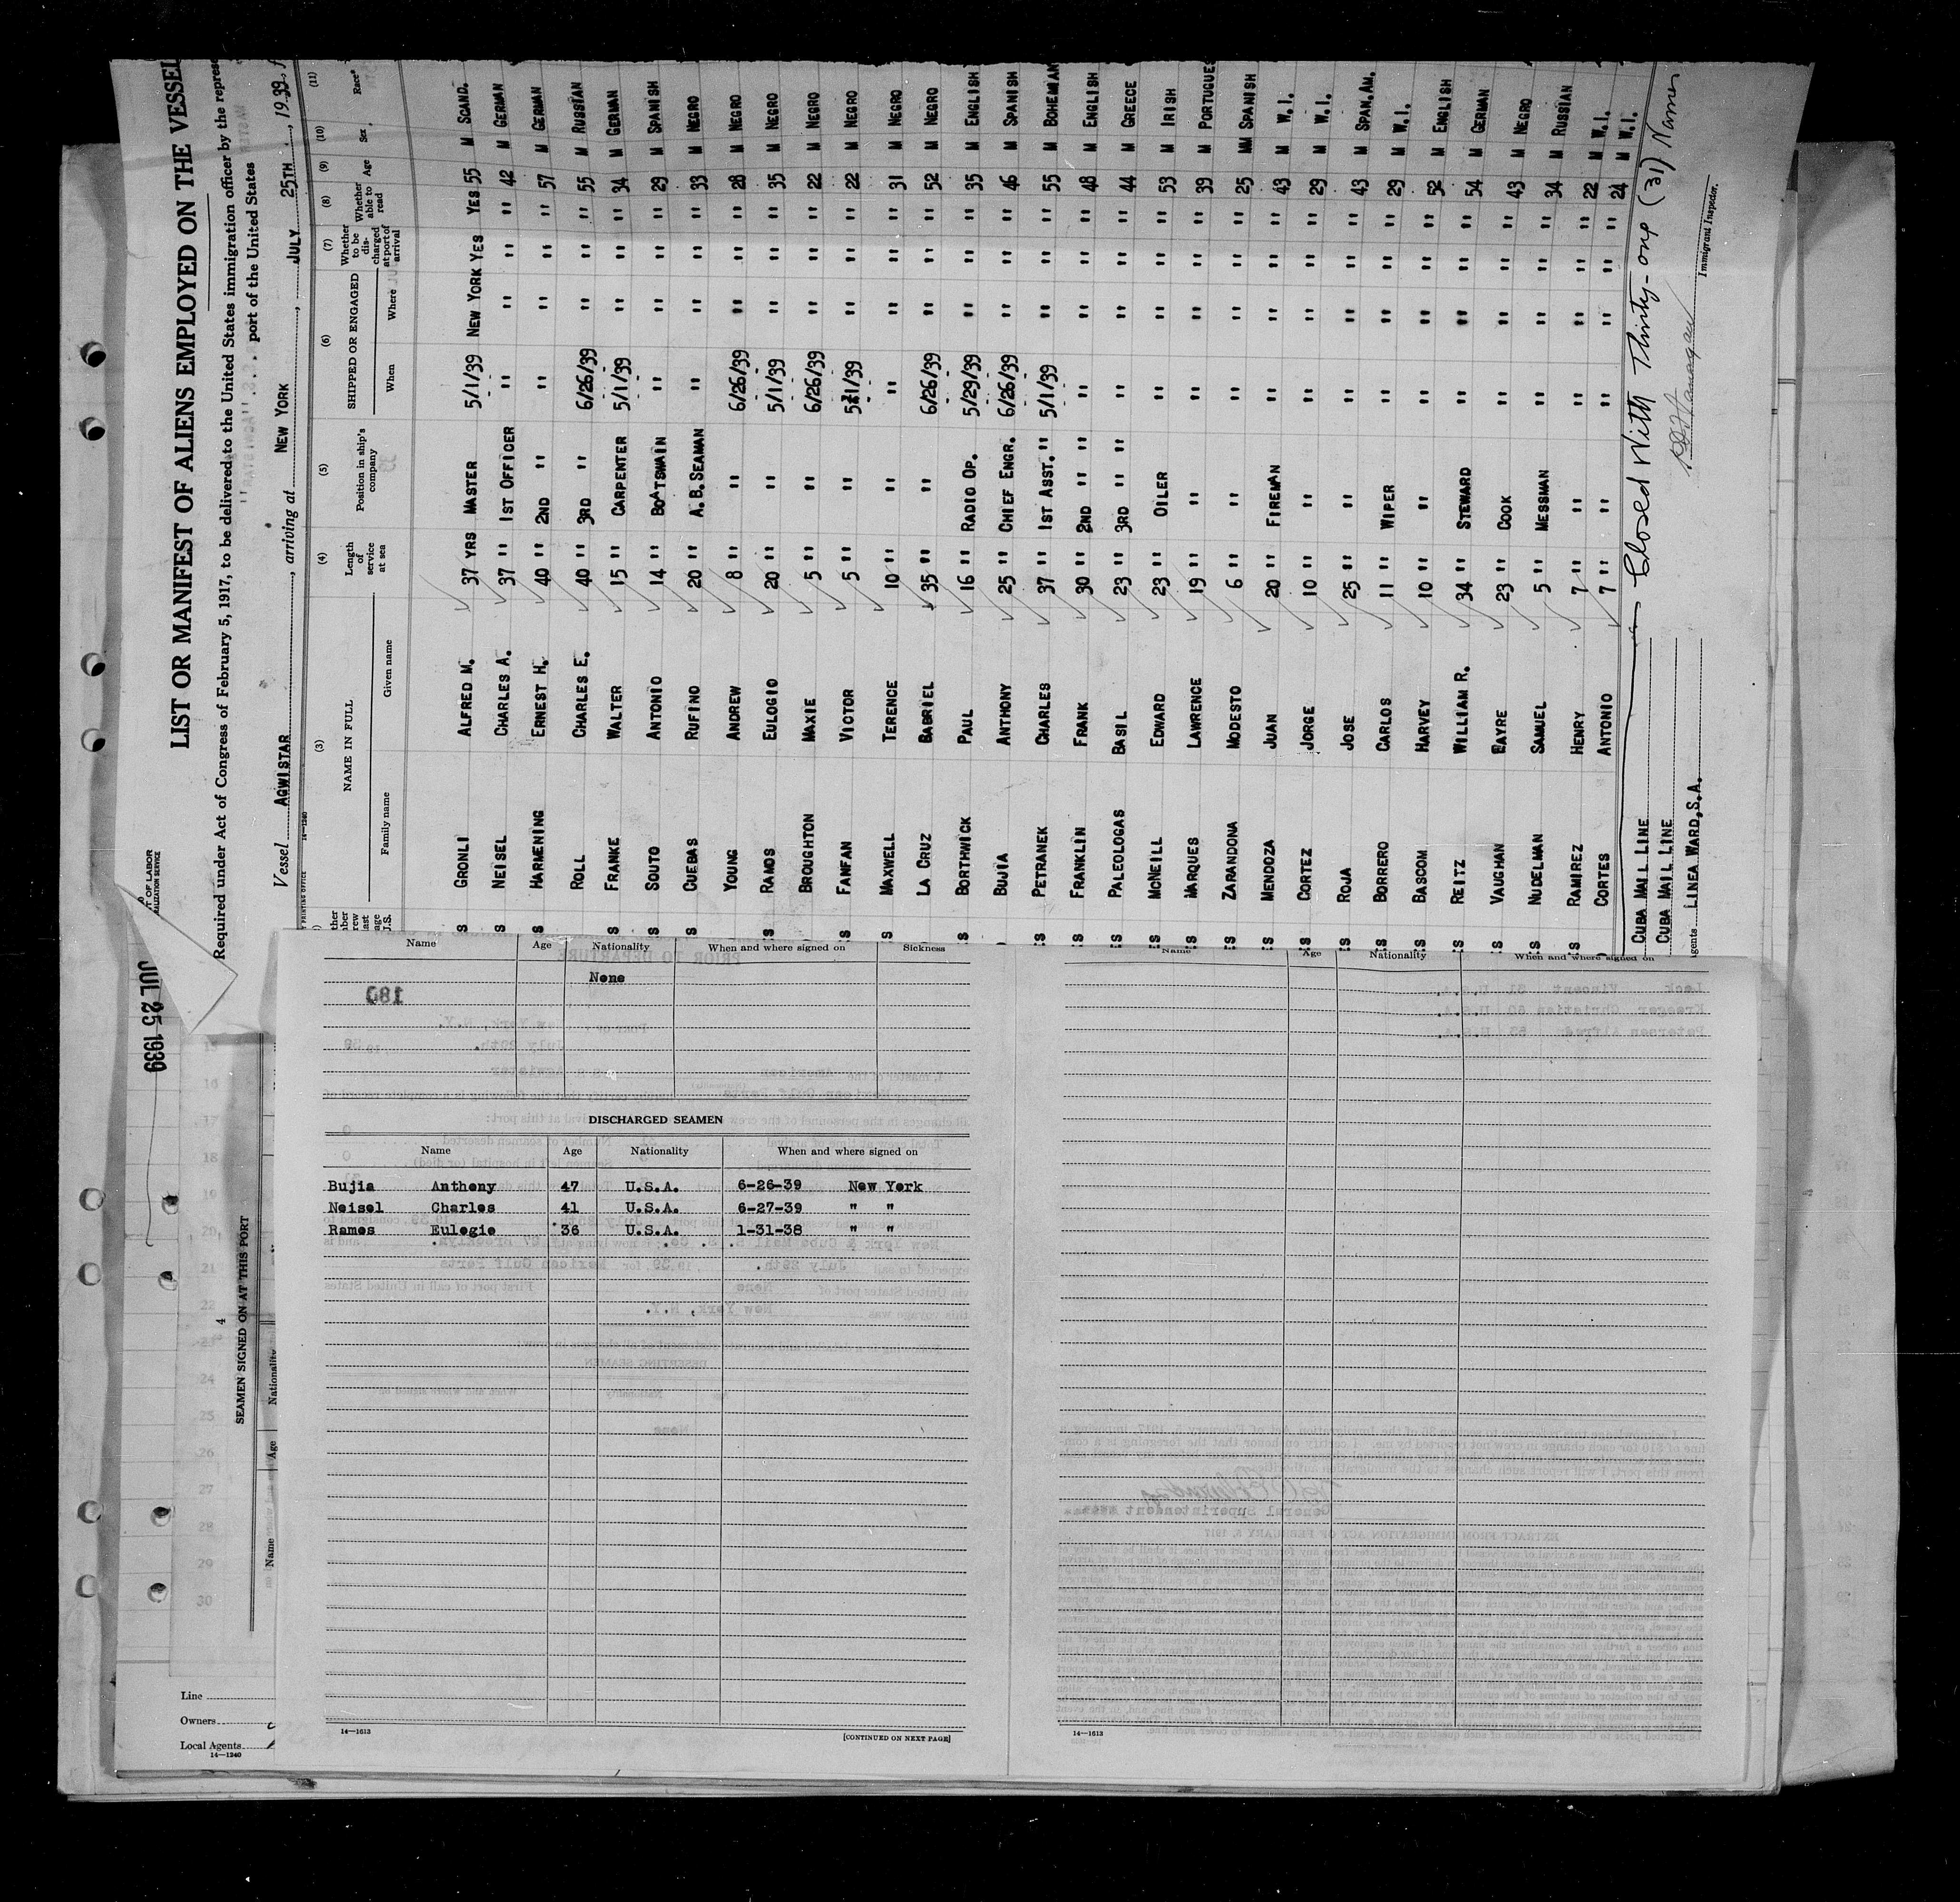 LIST OR MANIFEST OF ALIENS EMPLOYED ON THE VESSEL
Required under Act of Congress of February 5, 1917, to be delivered to the United States immigration officer by the represe
port of the United States
Vessel AGWISTAR, arriving at NEW YORK, JULY 25TH, 1939, f
(3) (4) (5) (6) (7) (8) (9) (10) (11)
NAME IN FULL Length of service at sea Position in ship's company SHIPPED OR ENGAGED Whether to be discharged at port of arrival Whether able to read Age Sex Race*
Family name Given name When Where
GRONLI ALFRED M. 37 YRS MASTER 5/1/39 NEW YORK YES YES 55 M SCAND.
NEISEL CHARLES A. 37 " 1ST OFFICER " " " " 42 M GERMAN
HARMENING ERNEST H. 40 " 2ND " " " " " 57 M GERMAN
ROLL CHARLES E. 40 " 3RD " 6/26/39 " " " 55 M RUSSIAN
FRANKE WALTER 15 " CARPENTER 5/1/39 " " " 34 M GERMAN
SOUTO ANTONIO 14 " BOATSWAIN " " " " 29 M SPANISH
CUEBAS RUFINO 20 " A.B.SEAMAN " " " " 33 M NEGRO
YOUNG ANDREW 8 " " 6/26/39 " " " 28 M NEGRO
RAMOS EULOGIO 20 " " 5/1/39 " " " 35 M NEGRO
BROUGHTON MAXIE 5 " " 6/26/39 " " " 22 M NEGRO
FANFAN VICTOR 5 " " 5/1/39 " " " 22 M NEGRO
MAXWELL TERENCE 10 " " " " " " 31 M NEGRO
LA CRUZ BABRIEL 35 " " 6/26/39 " " " 52 M NEGRO
BORTHWICK PAUL 16 " RADIO OP. 5/29/39 " " " 35 M ENGLISH
BUJIA ANTHONY 25 " CHIEF ENGR. 6/26/39 " " " 46 M SPANISH
PETRANEK CHARLES 37 " 1ST ASST. " 5/1/39 " " " 55 M BOHEMIAN
FRANKLIN FRANK 30 " 2ND " " " " " " 48 M ENGLISH
PALEOLOGAS BASIL 23 " 3RD " " " " " " 44 M GREECE
MCNEILL EDWARD 23 " OILER " " " " 53 M IRISH
MARQUES LAWRENCE 19 " " " " " " 39 M PORTUGUES
ZARANDONA MODESTO 6 " " " " " " 25 MM SPANISH
MENDOZA JUAN 20 " FIREMAN " " " " 43 M W.I.
CORTEZ JORGE 10 " " " " " " 29 M W.I.
ROJA JOSE 25 " " " " " " 43 M SPAN.AM.
BORRERO CARLOS 11 " WIPER " " " " 29 M W.I.
BASCOM HARVEY 10 " " " " " " 52 M ENGLISH
REITZ WILLIAM R. 34 " STEWARD " " " " 54 M GERMAN
VAUGHAN EAYRE 23 " COOK " " " " 43 M NEGRO
NUDELMAN SAMUEL 5 " MESSMAN " " " " 34 M RUSSIAN
RAMIREZ HENRY 7 " " " " " " 22 M W.I.
CORTES ANTONIO 7 " " " " " " 24 M W.I.
Closed With Thirty-one (31) Names
CUBA MAIL LINE
CUBA MAIL LINE
gents LINEA WARD,S.A.
Immigrant Inspector.
JUL 25 1939
4
SEAMEN SIGNED ON AT THIS PORT
Name Age Nationality
Line
Owners
Local Agents
14—1240
Name Age Nationality When and where signed on Sickness
None
180
DISCHARGED SEAMEN
Name Age Nationality When and where signed on
Bujia Anthony 47 U.S.A. 6-26-39 New York
Neisel Charles 41 U.S.A. 6-27-39 " "
Rames Eulogie 36 U.S.A. 1-31-38 " "
14—1613 [CONTINUED ON NEXT PAGE]
Name Age Nationality When and where signed on
14—1613